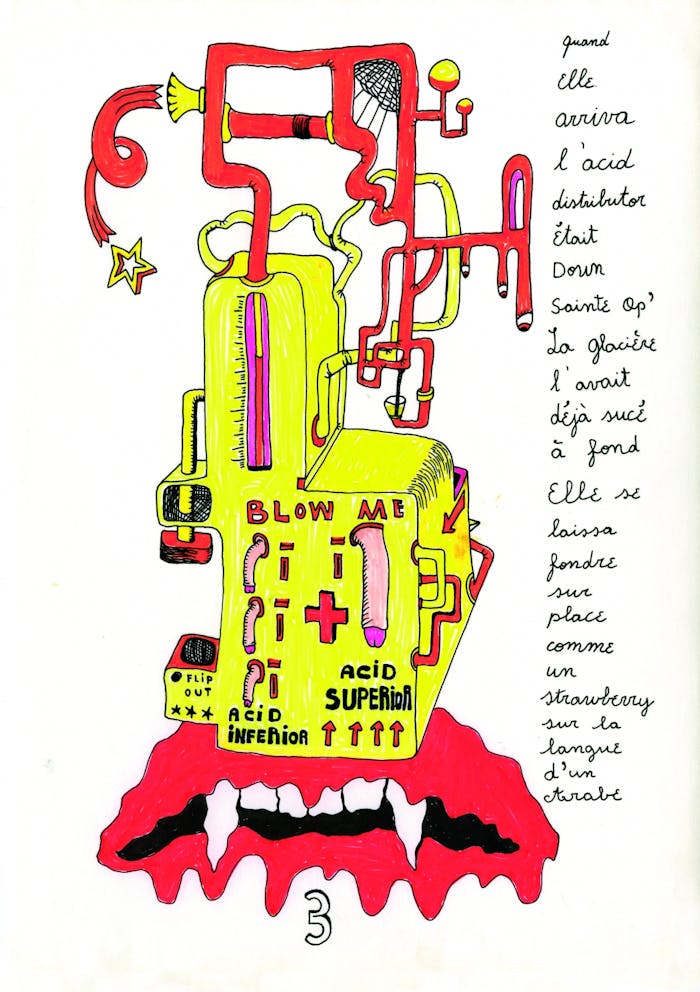 quand
Elle
arriva
l'acid
distributor
Était
Down
Sainte Op'
La glacière
l'avait
déjà sucé
à fond
Elle se
laissa
fondre
sur
place
comme
un
strawberry
sur la
langue
d'un
Arabe
BLOW ME
FLIP
OUT
ACID
SUPERIOR
ACID
INFERIOR
3